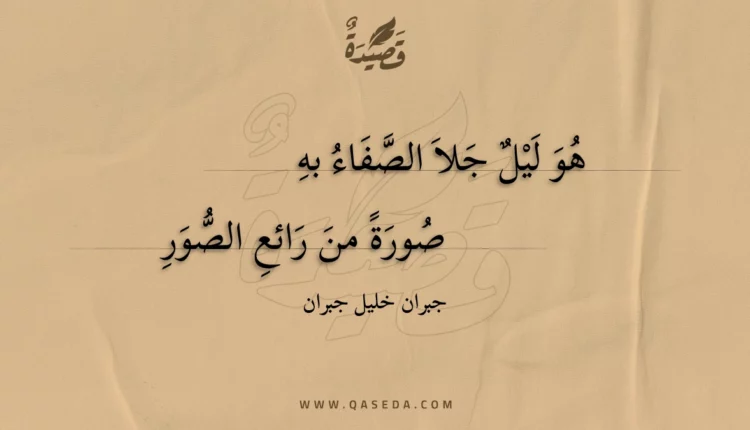 قَصِيْدَةٌ
هُوَ لَيْلٌ جَلاَ الصَّفَاءُ بهِ
صُورَةً منَ رَائعِ الصُّوَرِ
جبران خليل جبران
WWW.QASEDA.COM